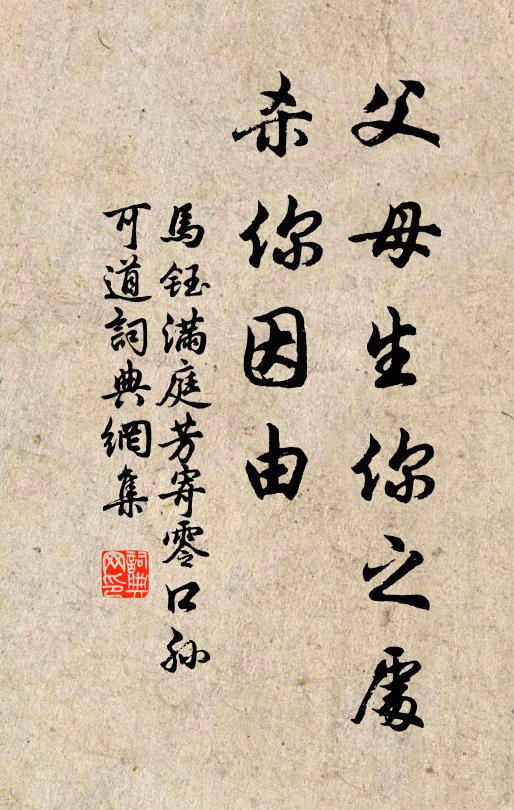 父母生你之處
杀你因由
馬鈺满庭芳寄零口孙
可道詞典網集
詞典網印